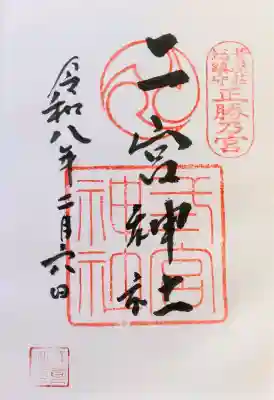 正勝乃宮
二宮神社
二宮神社
令和八年二月六日